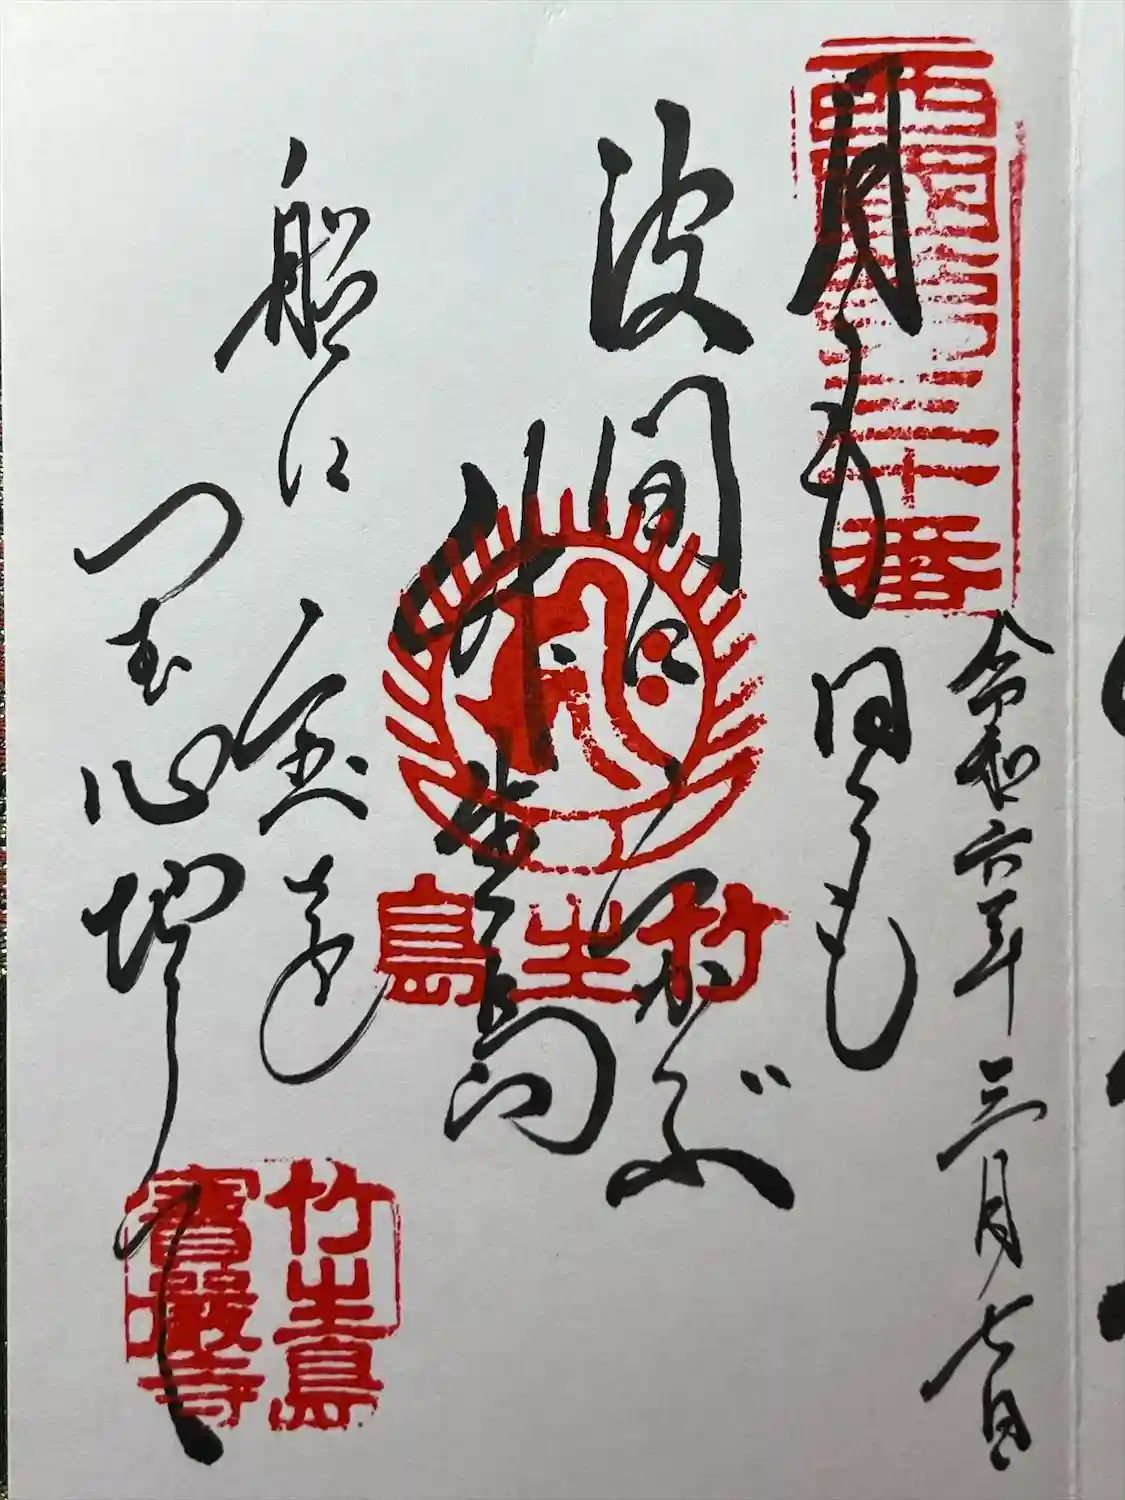 西國第三十番
令和六年三月七日
月も日も
波間に浮ぶ
竹生島
船に宝を
つむ心地して
竹生島
竹生島
寶嚴寺